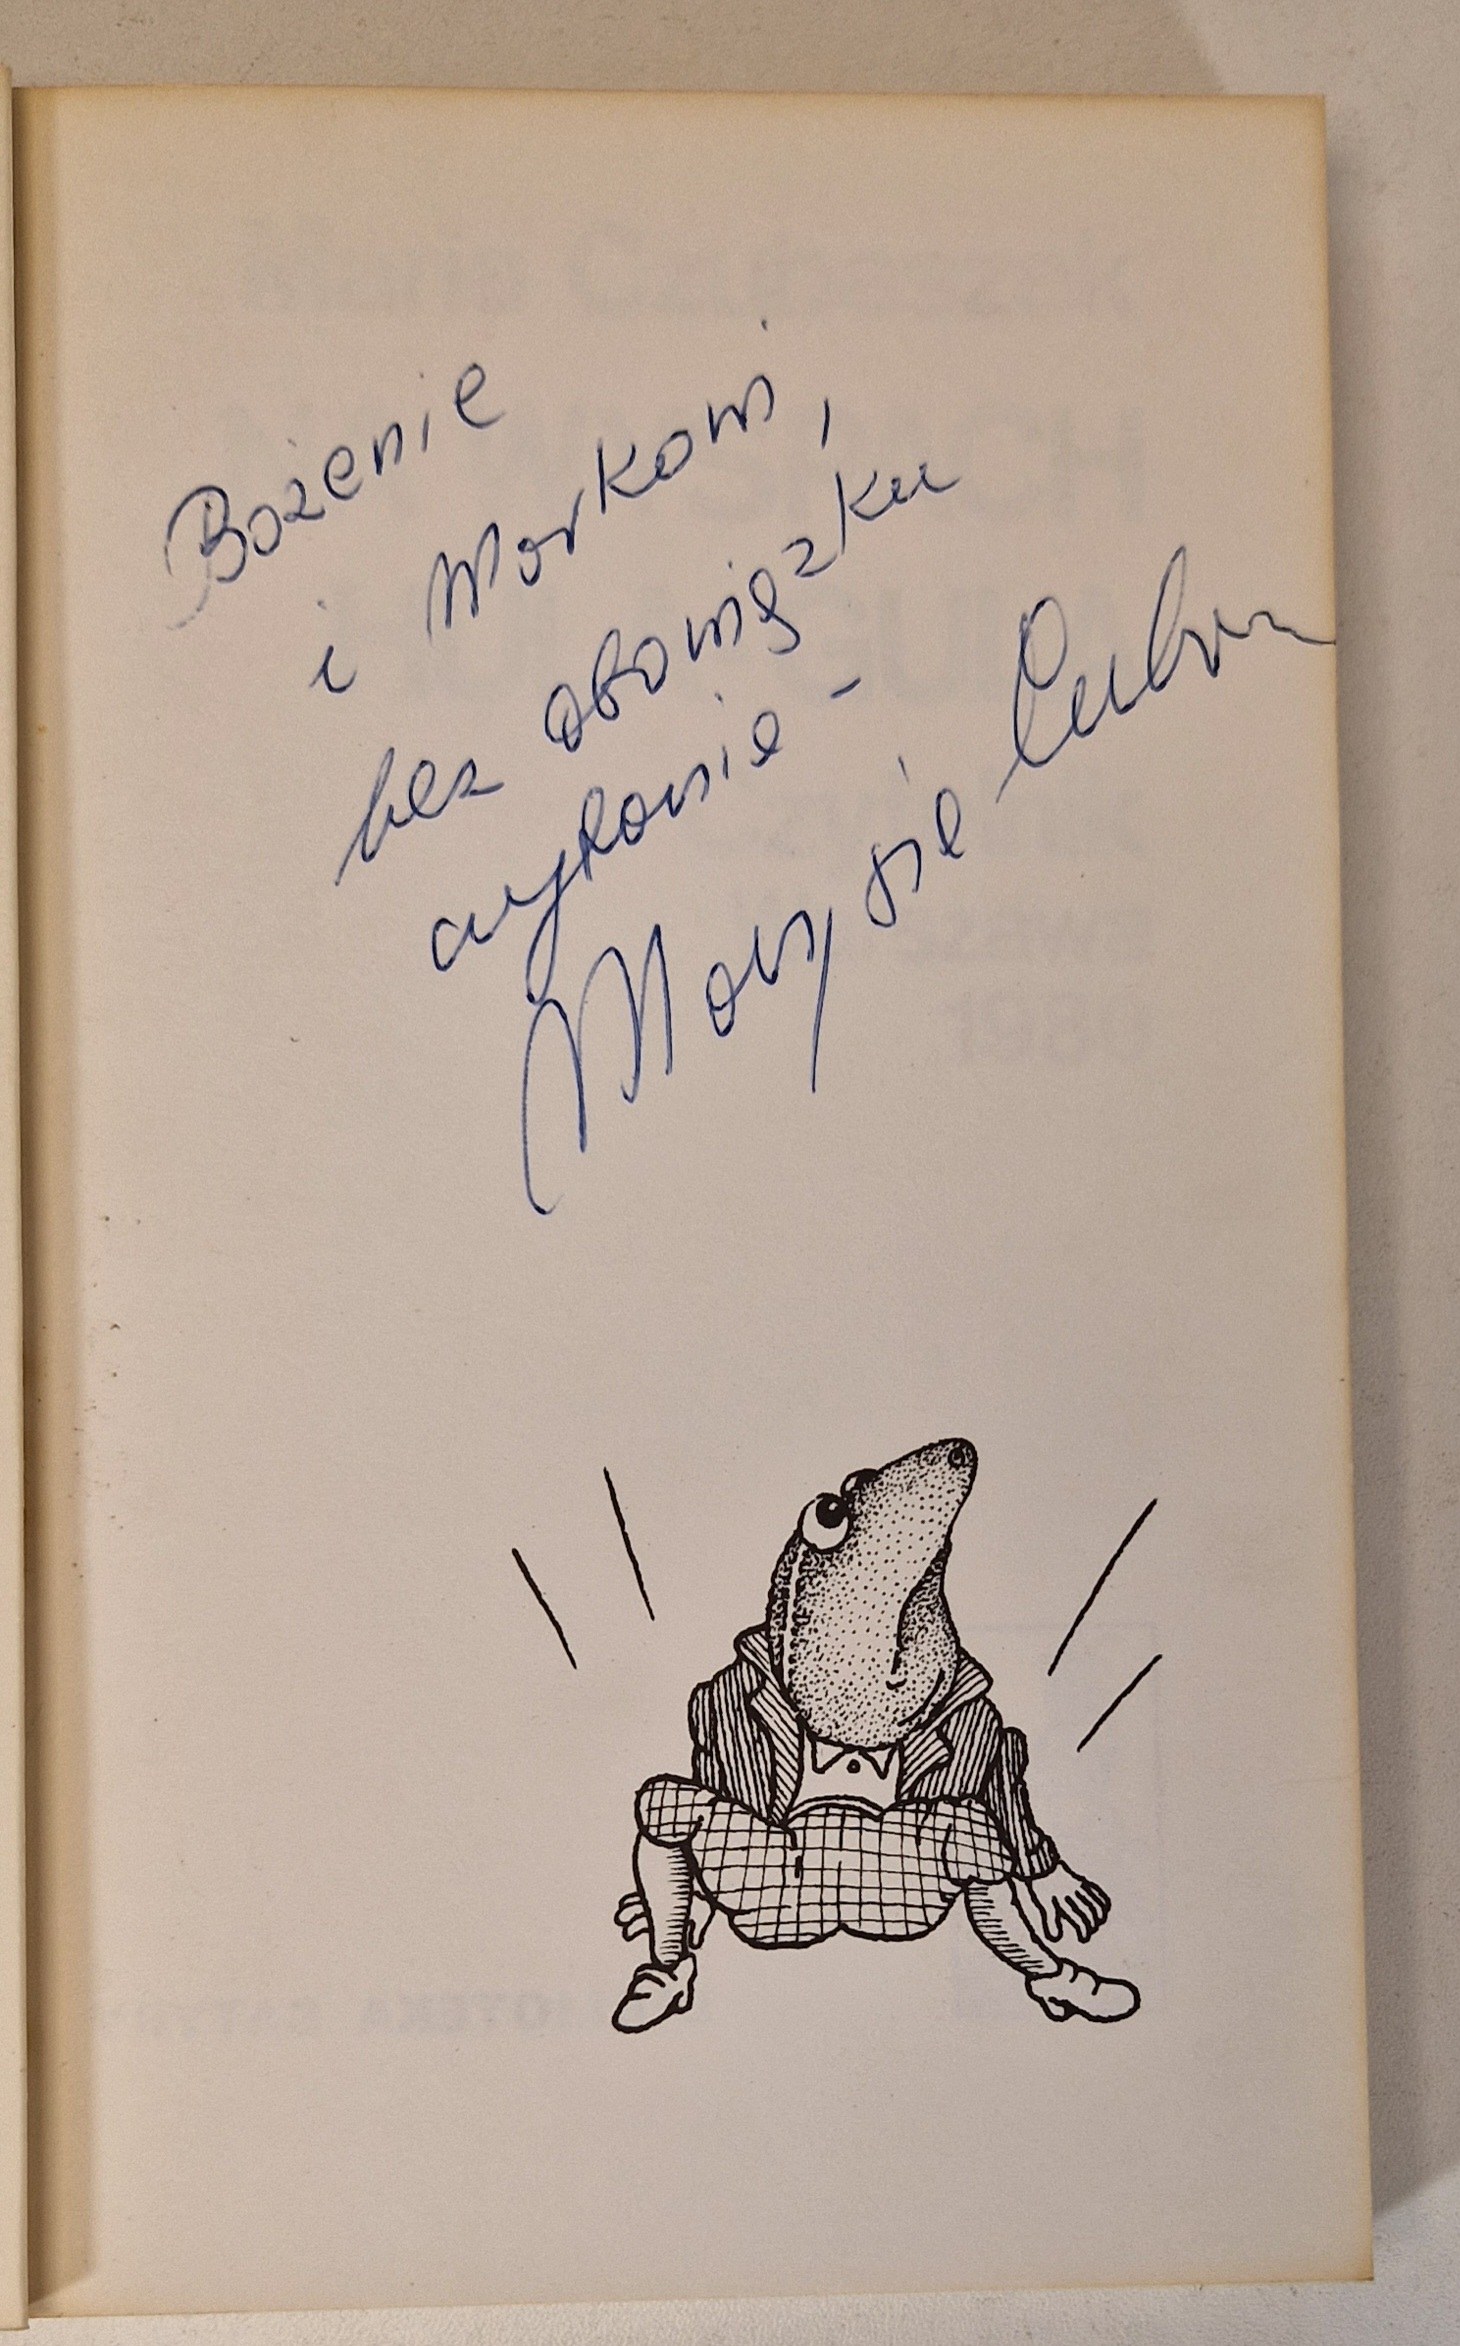 Bożenie
i Markowi,
bez obowiązku
czytania -
Marysia